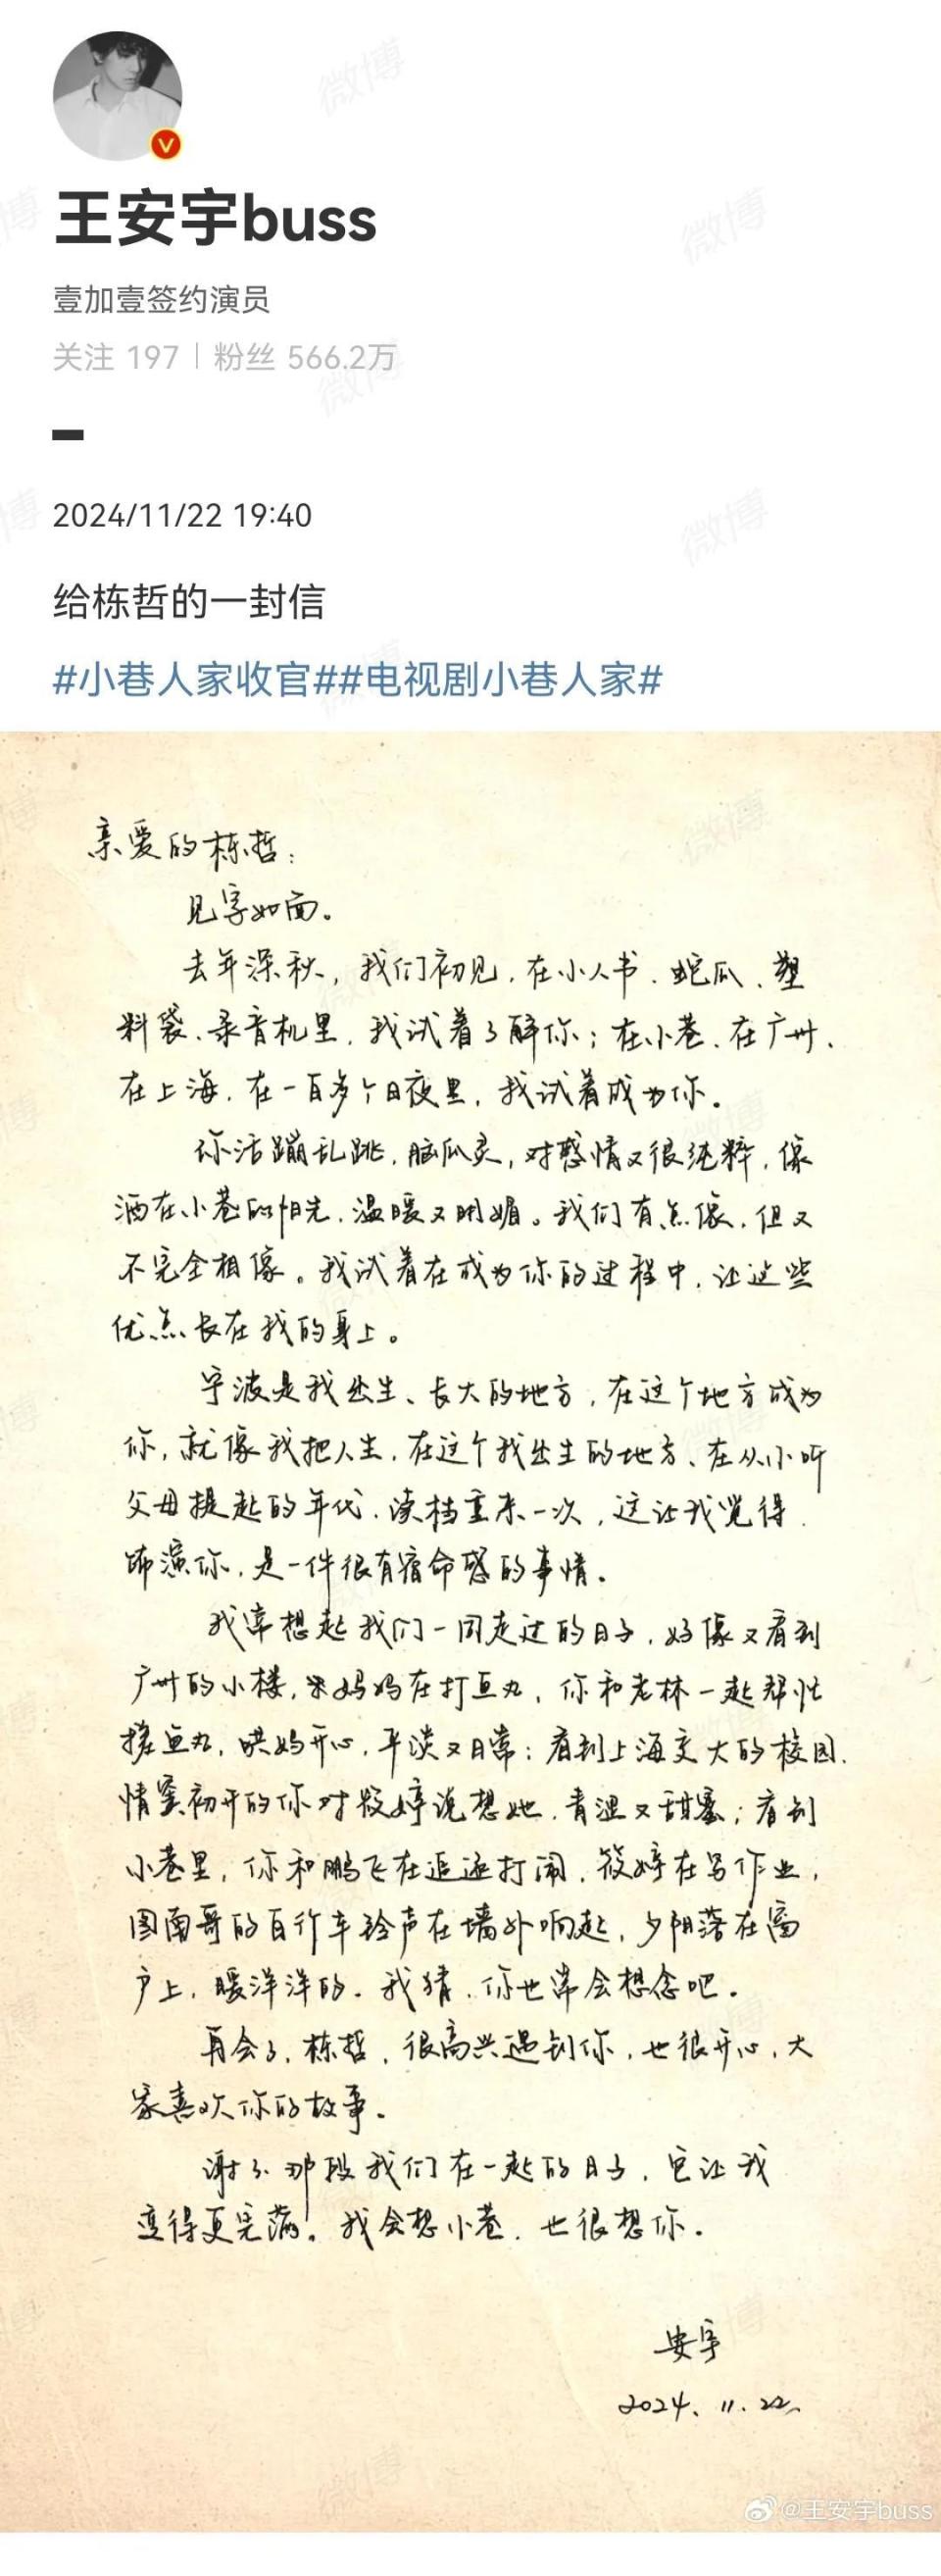 王安宇buss
壹加壹签约演员
关注 197 | 粉丝 566.2万
2024/11/22 19:40
给栋哲的一封信
#小巷人家收官##电视剧小巷人家#
亲爱的栋哲：
见字如面。
去年深秋，我们初见，在小人书、蛇瓜、塑
料袋、录音机里，我试着了解你；在小巷、在广州、
在上海，在一百多个日夜里，我试着成为你。
你活蹦乱跳，脑瓜灵，对感情又很纯粹，像
洒在小巷的阳光，温暖又明媚。我们有点像，但又
不完全相像。我试着在成为你的过程中，让这些
优点长在我的身上。
宁波是我出生、长大的地方，在这个地方成为
你，就像我把人生，在这个我出生的地方、在从小听
父母提起的年代，读档重来一次，这让我觉得，
饰演你，是一件很有宿命感的事情。
我常想起我们一同走过的日子，好像又看到
广州的小楼，宋妈妈在打鱼丸，你和老林一起帮忙
搓鱼丸，哄妈开心，平淡又日常；看到上海交大的校园，
情窦初开的你对筱婷说想她，青涩又甜蜜；看到
小巷里，你和鹏飞在追逐打闹，筱婷在写作业，
图南哥的自行车铃声在墙外响起，夕阳落在窗
户上，暖洋洋的。我猜，你也常会想念吧。
再会了，栋哲，很高兴遇到你，也很开心，大
家喜欢你的故事。
谢谢那段我们在一起的日子，它让我
变得更完满。我会想小巷，也很想你。
安宇
2024.11.22
@王安宇buss